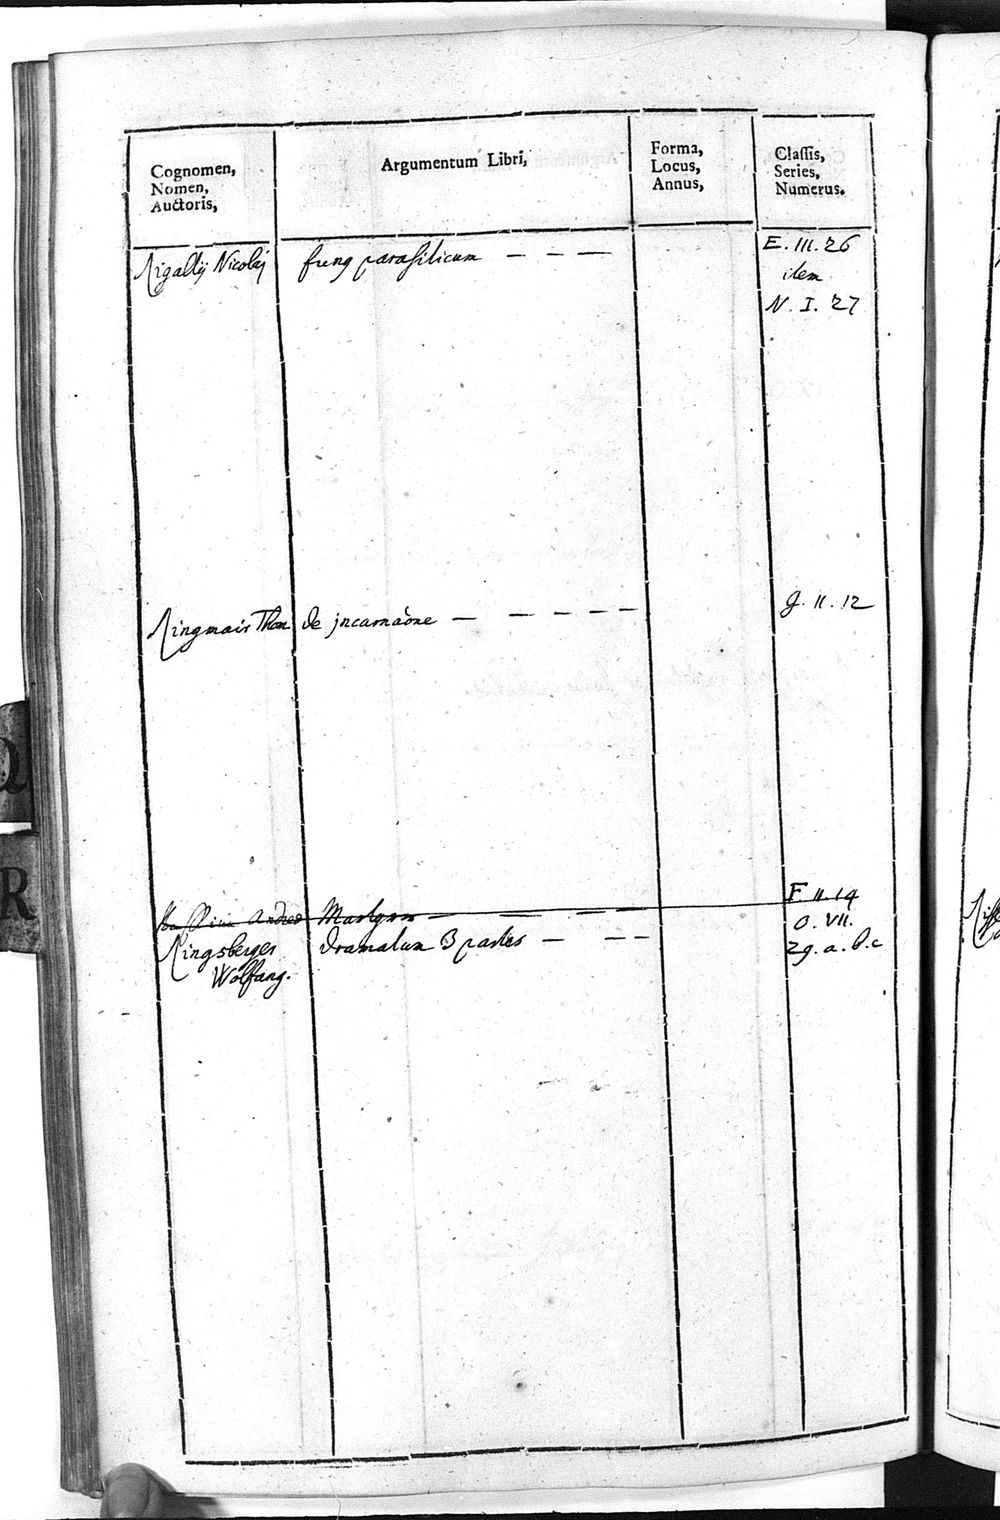 Cognomen,
Nomen,
Auctoris,
Argumentum Libri,
Forma,
Locus,
Annus,
Classis,
Series,
Numerus.
Rigaltij Nicolaj funq parasiticum — — — E. III. 26
item
N. I. 27
Ringmair Thom de jncarnaòne — — — — — J. II. 12
Andreæ Martyrum — — — — F. II. 14
Ringsberger dramatum 3 partes — — — O. VII.
Wolfang. 29. a. b. c
Q
R